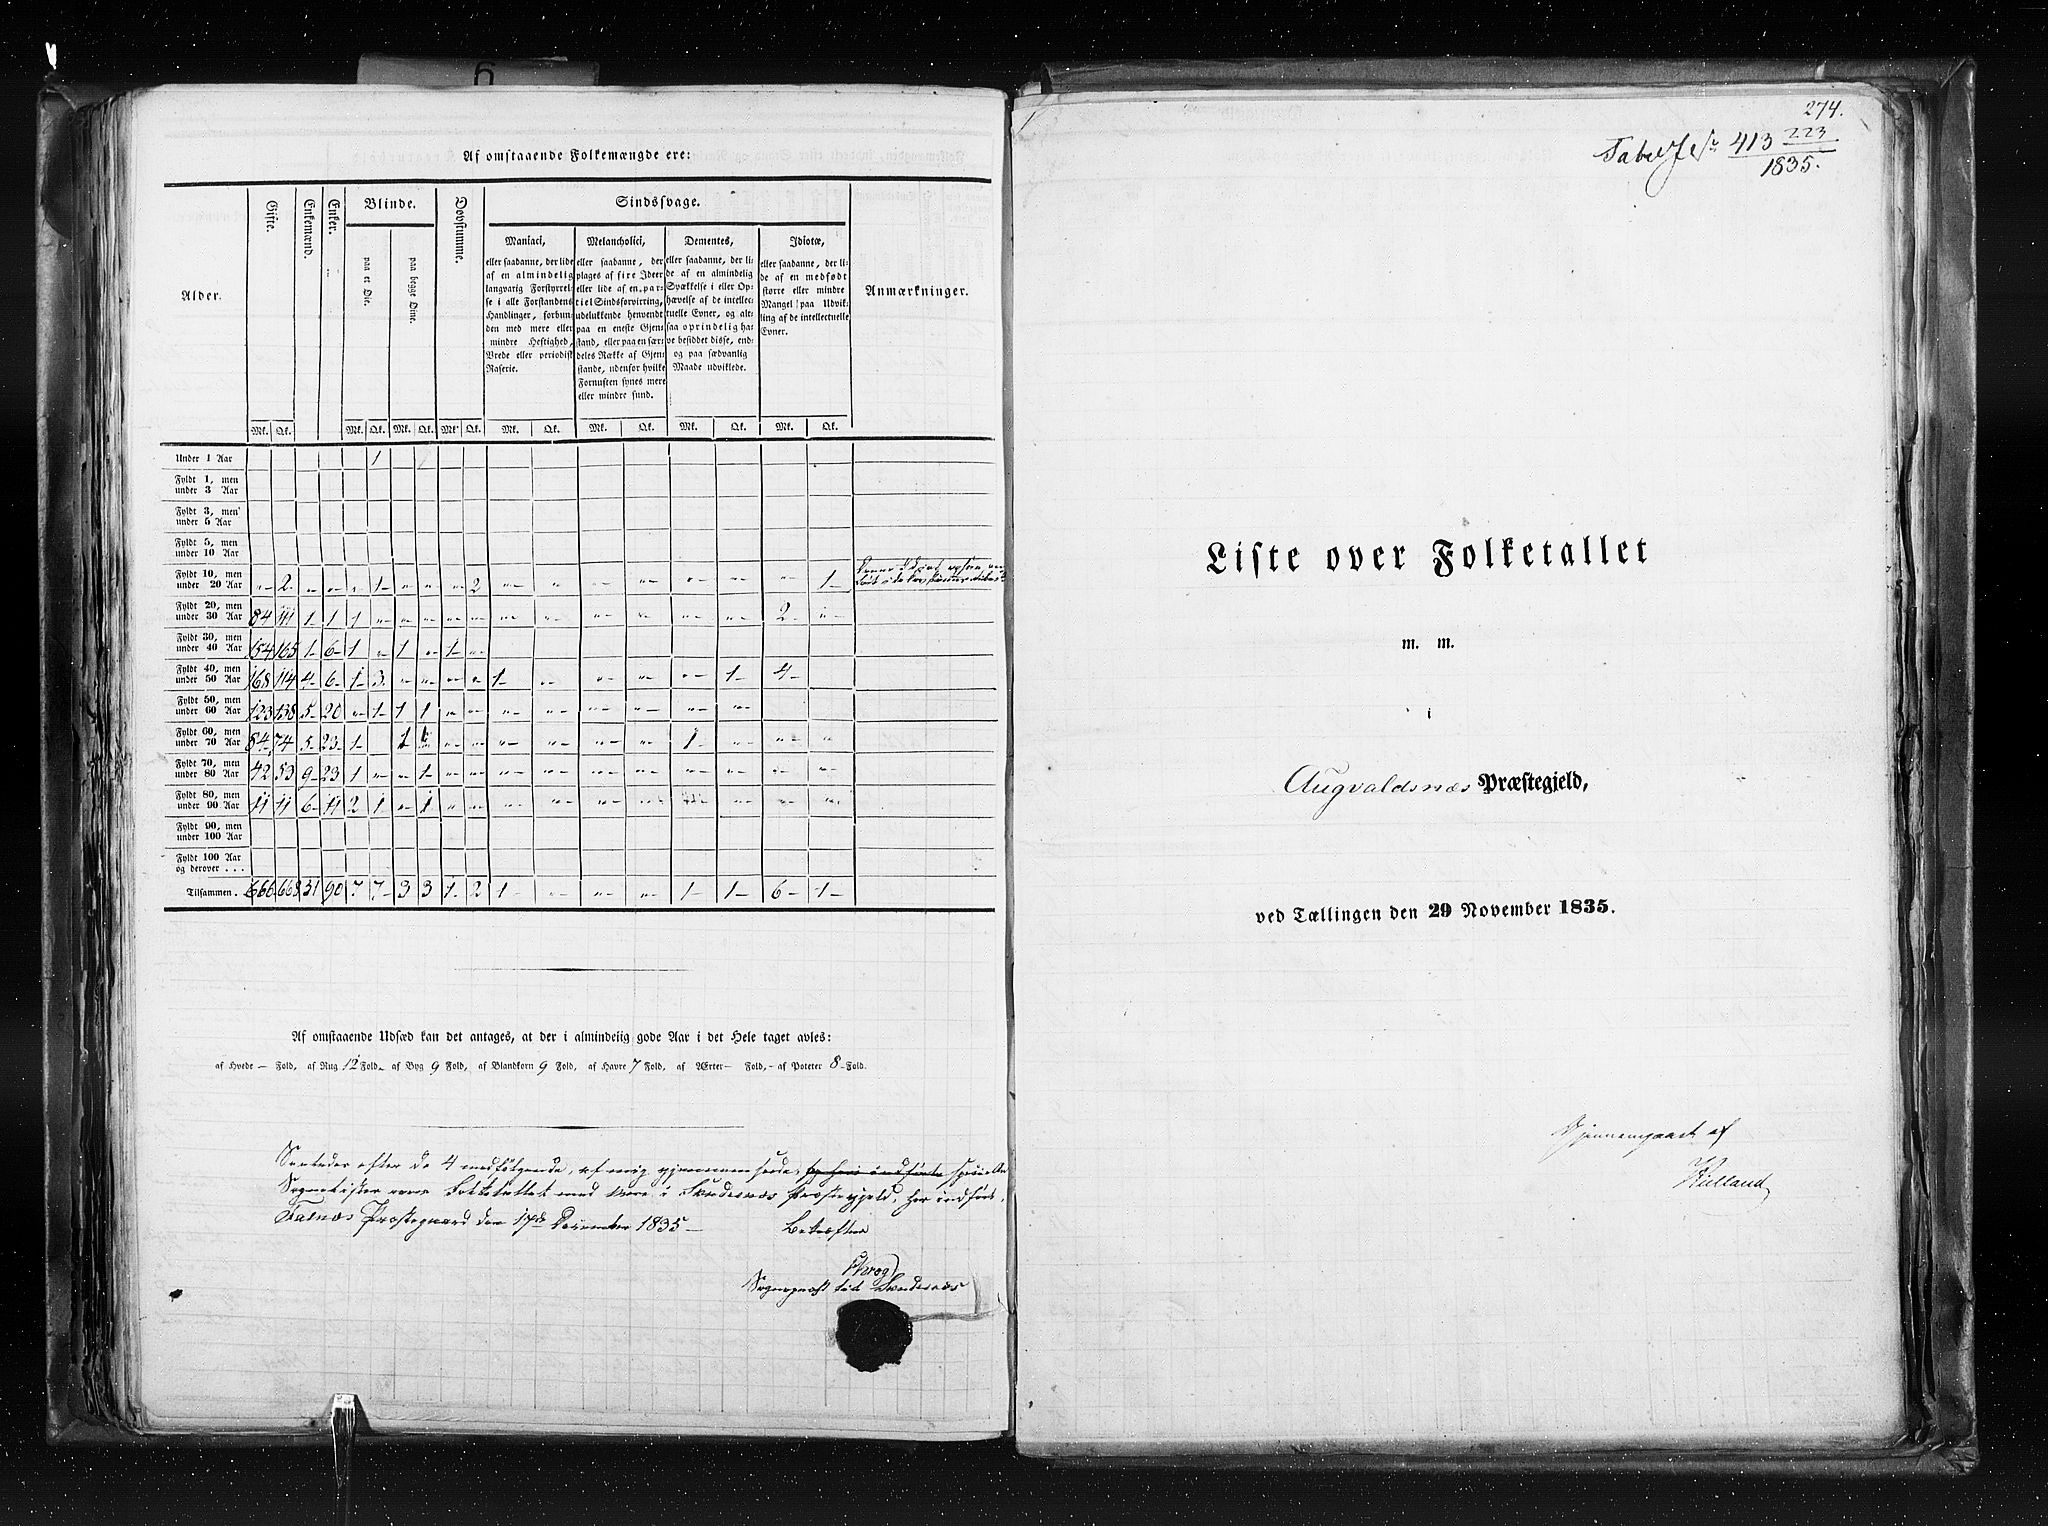 6
Af omstaaende Folkemængde ere:
Alder. Gifte. Enkemænd. Enker. Blinde. Dovstumme. Sindssvage. Anmærkninger.
paa et Øie. paa begge Øine.
Maniaci,
eller saadanne, der lide
af en almindelig
langvarig Forstyrrel-
se i alle Forstandens
Handlinger, forbun-
den med mere eller
mindre Heftighed,
Vrede eller periodisk
Raserie.
Melancholici,
eller saadanne, der
plages af fire Ideer
eller lide af en par-
tiel Sindsforvirring,
udelukkende henvendt
paa en eneste Gjen-
stand, eller paa en sær-
deles Række af Gjen-
stande, udenfor hvilke
Fornuften synes mere
eller mindre sund.
Dementes,
eller saadanne, der li-
de af en almindelig
Svækkelse i eller Op-
hævelse af de intellec-
tuelle Evner, og alt-
saa oprindelig ha-
ve besiddet disse, end-
og paa sædvanlig
Maade udviklede.
Idiotæ,
eller saadanne, der li-
de af en medfødt
større eller mindre
Mangel paa Udvik-
ling af de intellectuelle
Evner.
Mk. Qk. Mk. Qk. Mk. Qk. Mk. Qk. Mk. Qk. Mk. Qk. Mk. Qk. Mk. Qk.
Under 1 Aar 1
Fyldt 1, men
under 3 Aar
Fyldt 3, men
under 5 Aar
Fyldt 5, men
under 10 Aar
Fyldt 10, men
under 20 Aar „ 2 „ „ „ 1 „ „ „ 2 „ „ „ „ „ „ „ 1
Fyldt 20, men
under 30 Aar 84 111 1 1 1 „ „ „ „ „ „ „ „ „ „ „ 2 „
Fyldt 30, men
under 40 Aar 154 165 1 6 1 „ 1 „ 1 „
Fyldt 40, men
under 50 Aar 168 114 4 6 1 3 „ „ „ „ 1 „ „ „ „ 1 4
Fyldt 50, men
under 60 Aar 123 138 5 20 „ 1 1 1 „ „ „ „ „ „ „ „
Fyldt 60, men
under 70 Aar 84 74 5 23 1 1 1 „ „ „ „ „ „ 1 „ „ „
Fyldt 70, men
under 80 Aar 42 53 9 23 1 „ „ 1 „ „ „ „ „ „ „ „ „ „
Fyldt 80, men
under 90 Aar 11 11 6 11 2 1 „ 1 „ „ „ „ „ „ „ „ „ „
Fyldt 90, men
under 100 Aar
Fyldt 100 Aar
og derover . . .
Tilsammen . 666 668 31 90 7 7 3 3 1 2 1 „ „ „ 1 1 6 1
Af omstaaende Udsæd kan det antages, at der i almindelig gode Aar i det Hele taget avles:
af Hvede – Fold, af Rug 12 Fold, af Byg 9 Fold, af Blandkorn 9 Fold, af Havre 7 Fold, af Ærter – Fold, – af Poteter 8 Fold.
efter de 4 medfølgende, af mig gjennemseede, og heri indførte specielle
Sognelister over Folketallet med mere i Skudesnæs Præstegjeld, her indført.
Falnæs Præstegaard den 17de December 1835 –
Bekræftes
Sognepræst til Skudesnæs
274.
Tabelf 413 223
1835.
Liste over Folketallet
m. m.
i
Augvaldsnæs Præstegjeld,
ved Tællingen den 29 November 1835.
Gjennemgaaet af
Kielland